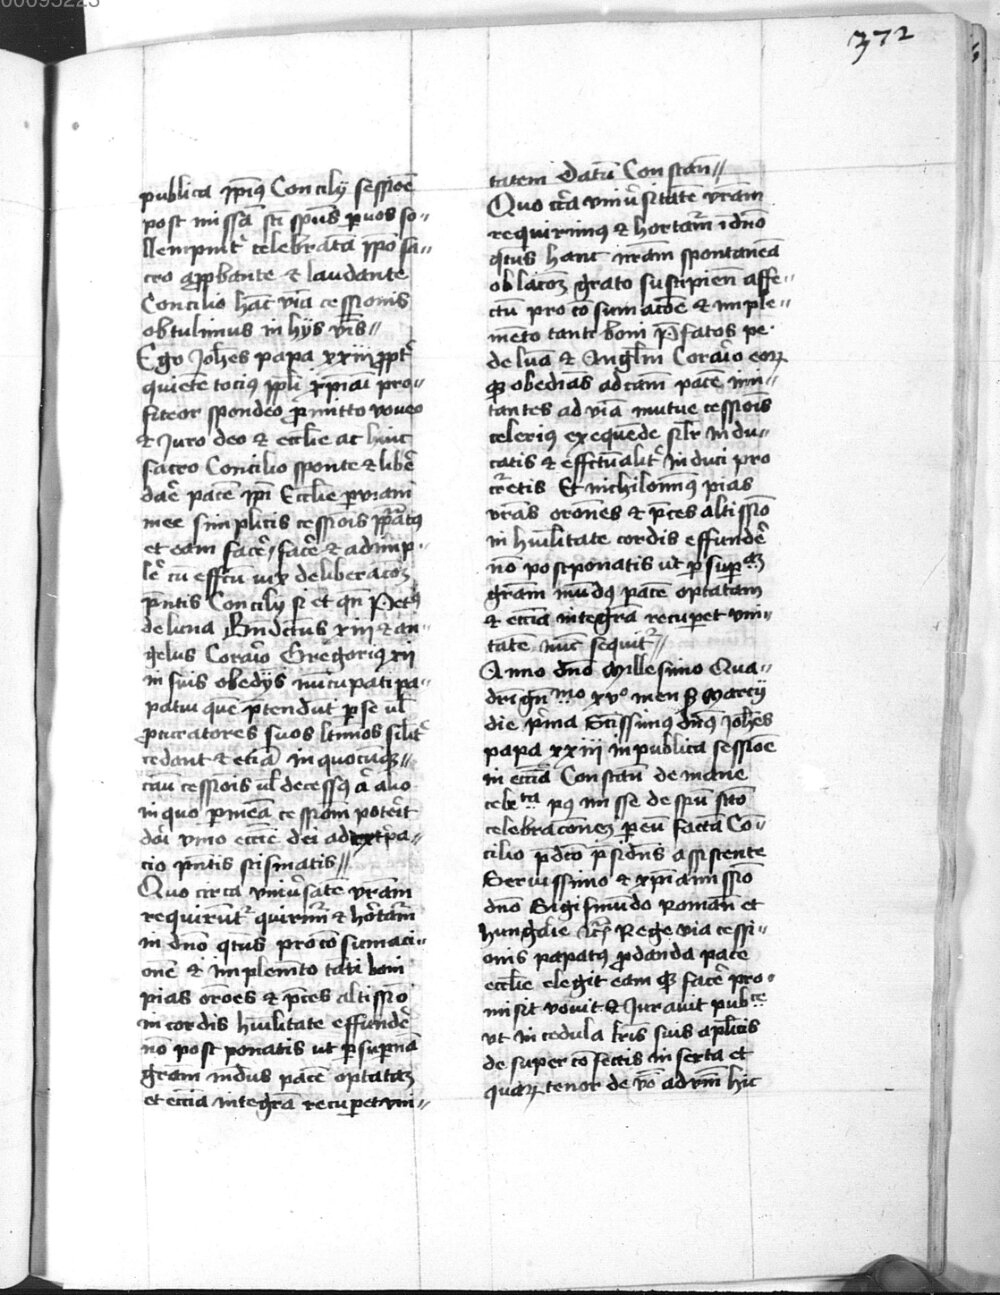 00095223
372
publica ipius Concilij sessioē
post missā sci spūs p̱ uos so〃
llempnit̉ celebrata ipō sa〃
cro app̱bante ⁊ laudante
Concilio hāc viā cessionis
obtulimus in hijs v̄bis〃
Ego Joh̄es papa xxiij p̱pt̉
quietē tocius ppl̄i xp̄iani pro〃
fiteor spondeo p̱mitto voueo
⁊ Juro deo ⁊ eccl̄ie ac huic
sacro Concilio sponte ⁊ libē
dae̓ pacē ip̄i Eccl̄ie p̱ viam
mee simplicis cessiois ppatus
et eam facē, facē ⁊ adimp〃
le̓ cū effcū iux̄ deliberacōꝫ
p̄ntis Concilij si et qn̄ Pet̓
de luna Bn̄dictus xiij ⁊ an〃
gelus Corario Gregorius xij
in suis obedijs nūcupati pa〃
patui que p̄tendūt p̱ se ul̄
p̱curatores suos l̄timos sil̄it̉
cedant ⁊ etiā in quocūqꝫ〃
cau cessiois ul̄ decessꝰ a̓ alio
in quo p̱ meā cessioꝫ pot̓it
dai vnio eccīe dei ad extpa〃
cio p̄ntis scismatis〃
Quo circa vniu̓satē vr̄am
requirūt̓ quirim̓ ⁊ hortam̓
in dn̄o q̄tus pro cōsumaci〃
onē ⁊ implemēto tāti boni
pias or̄oes ⁊ p̄ces altissīo
in cordis hūilitate effundē
nō postponatis ut p̱ sup̱nā
grām mdus pacē optatāꝫ
et eccīa integrā recup̱et vni〃
tatem Datū Constan̄〃
Quo cc̄a vniu̓sitate vr̄am
requirimꝰ ⁊ hortam̓ ī dn̄o
q̄tus hanc nr̄am spontaneā
oblacōꝫ grato suscipien̄ affe〃
ctu pro cōsumacōe ⁊ imple〃
mēto tanti boni p̄fatos pe
de lūa ⁊ Angl̄m Corario eoꝝ
qꝫ obediās ad eam pacē imi〃
tantes ad viā mutue cessiois
celerius exequēde sil̄r indu〃
catis ⁊ effectualit̓ induci pro
c̄retis Et nichilomīꝰ pias
vras or̄ones ⁊ p̄ces altissīo
in hūilitate cordis effundē
nō postponatis ut p̱ sup̱nāꝫ
grām mūdꝰ pacē optatam
⁊ eccīa integrā recup̱et vni〃
tatē nūc sequit̓〃
Anno dn̄o Millesimo Qua〃
dringn̄mo xvº mens̄ꝫ Marcij
die p̓ma Sctissimꝰ dn̄us Joh̄es
papa xxiij in publica sessioē
in eccīa Constan̄ de mane
celebrata pꝰ misse de sp̄u scto
celebraconeꝫ p̱ eū facta Co〃
cilio p̄dco p̄sidn̄s assistente
Seruissimo ⁊ xp̄ianissīo
dn̄o Sigismūdo Roman̄ et
hungarie ꝛc̄ Rege via cessi〃
onis papatꝰ p̱ danda pace
eccl̄ie elegit eam qꝫ facē pro〃
misit vouit ⁊ Jurauit publice
vt in cedula l̄ris suis ap̄licis
desuper cōfectis inserta et
quaꝝ tenor de v̄bo ad v̄bm hic